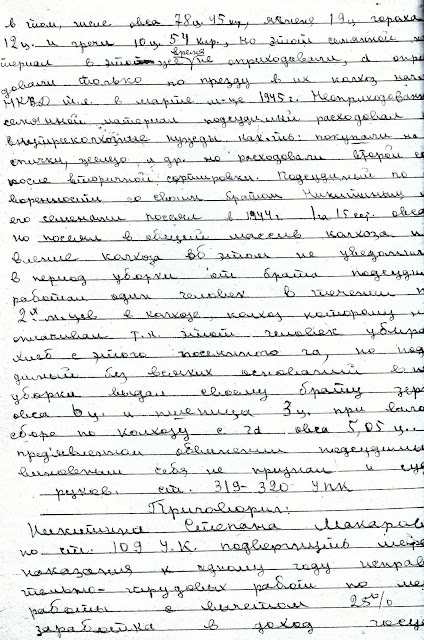 в том, числе овса 78 ц 45 кгр, ячменя 19 ц гороха
12 ц. и гречи 10 ц. 54 кгр, но этот семянной ма
териал в это же время не оприходовали, а опри
довали только по презду в их колхоз нача
НКВД т.е. в марте м-це 1945 г. Неоприходован
семянной материал подсудимый расходовал
внутриколхозные нужды, как-то: покупали на
спички, железо и др. но расходовали второй со
после вторичной сортировки. Подсудимый по
воренности со своим братом Никитиным и
его семенами посеял в 1944 г. 1 га 15 сот. овса
но посеял в общей массив колхоза п
вление колхоза об этом не уведомил
в период уборки от брата подсуди
работал один человек в течении п
2х м-цев в колхозе, колхоз которому н
оплачивал т.к. этот человек убира
хлеб с этого посеянного га, но под
димый без всяких оснований в п
уборки выдал своему брату зер
овса 6 ц. и пшеница 3 ц. при вало
сборе по колхозу с га овса 5,05 ц.
пред'явленном обвинении подсудимы
виновным себя не признал и суд
руков. ст. 319-320 УПК
Приговорил:
Никитина Степана Макаров
по ст. 109 У.К. подвергнуть мере
наказания к одному году исправ
тельно-трудовых работ по ме
работы с вычетом 25%
заработка в доход госуд